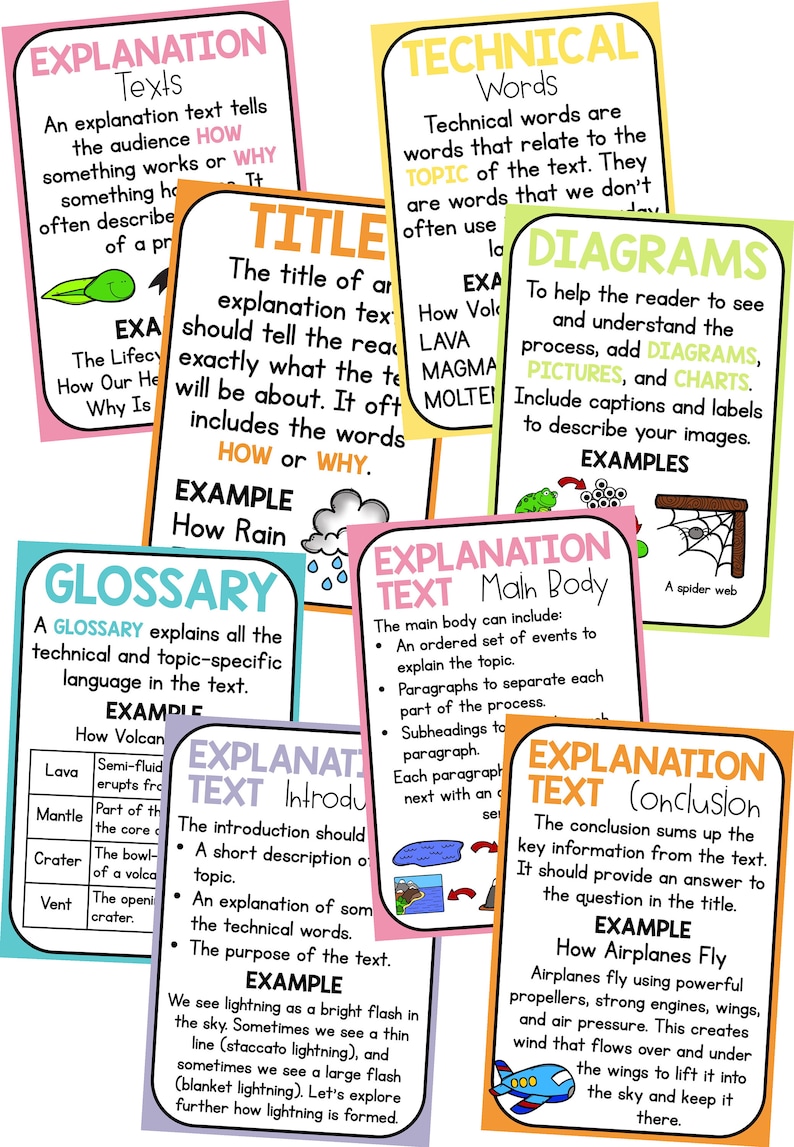 EXPLANATION
Texts
An explanation text tells
the audience HOW
something works or WHY
something It
often
of a
The
How Our
Why Is
TECHNICAL
Words
Technical words are
words that relate to the
TOPIC of the text. They
are words that we don't
often use
How
LAVA
MAGMA
TITLE
The title of an
explanation text
should tell the
exactly what the
will be about. It
includes the words
HOW or WHY.
EXAMPLE
How Rain
DIAGRAMS
To help the reader to see
and understand the
process, add DIAGRAMS,
PICTURES, and CHARTS.
Include captions and labels
to describe your images.
EXAMPLES
A spider web
GLOSSARY
A GLOSSARY explains all the
technical and topic-specific
language in the text.
EXAMPLE
How
Lava
Semi-fluid
erupts
Mantle
Part of
the core
Crater
The
of a
Vent
The
crater.
EXPLANATION
TEXT Main Body
The main body can include:
• An ordered set of events to
explain the topic.
• Paragraphs to separate each
part of the process.
• Subheadings to
paragraph.
Each
next with an
EXPLANATION
TEXT
The introduction should
• A short description of
topic.
• An explanation of
the technical words.
• The purpose of the text.
EXAMPLE
We see lightning as a bright flash in
the sky. Sometimes we see a thin
line (staccato lightning), and
sometimes we see a large flash
(blanket lightning). Let's explore
further how lightning is formed.
EXPLANATION
TEXT Conclusion
The conclusion sums up the
key information from the text.
It should provide an answer to
the question in the title.
EXAMPLE
How Airplanes Fly
Airplanes fly using powerful
propellers, strong engines, wings,
and air pressure. This creates
wind that flows over and under
the wings to lift it into
the sky and keep it
there.